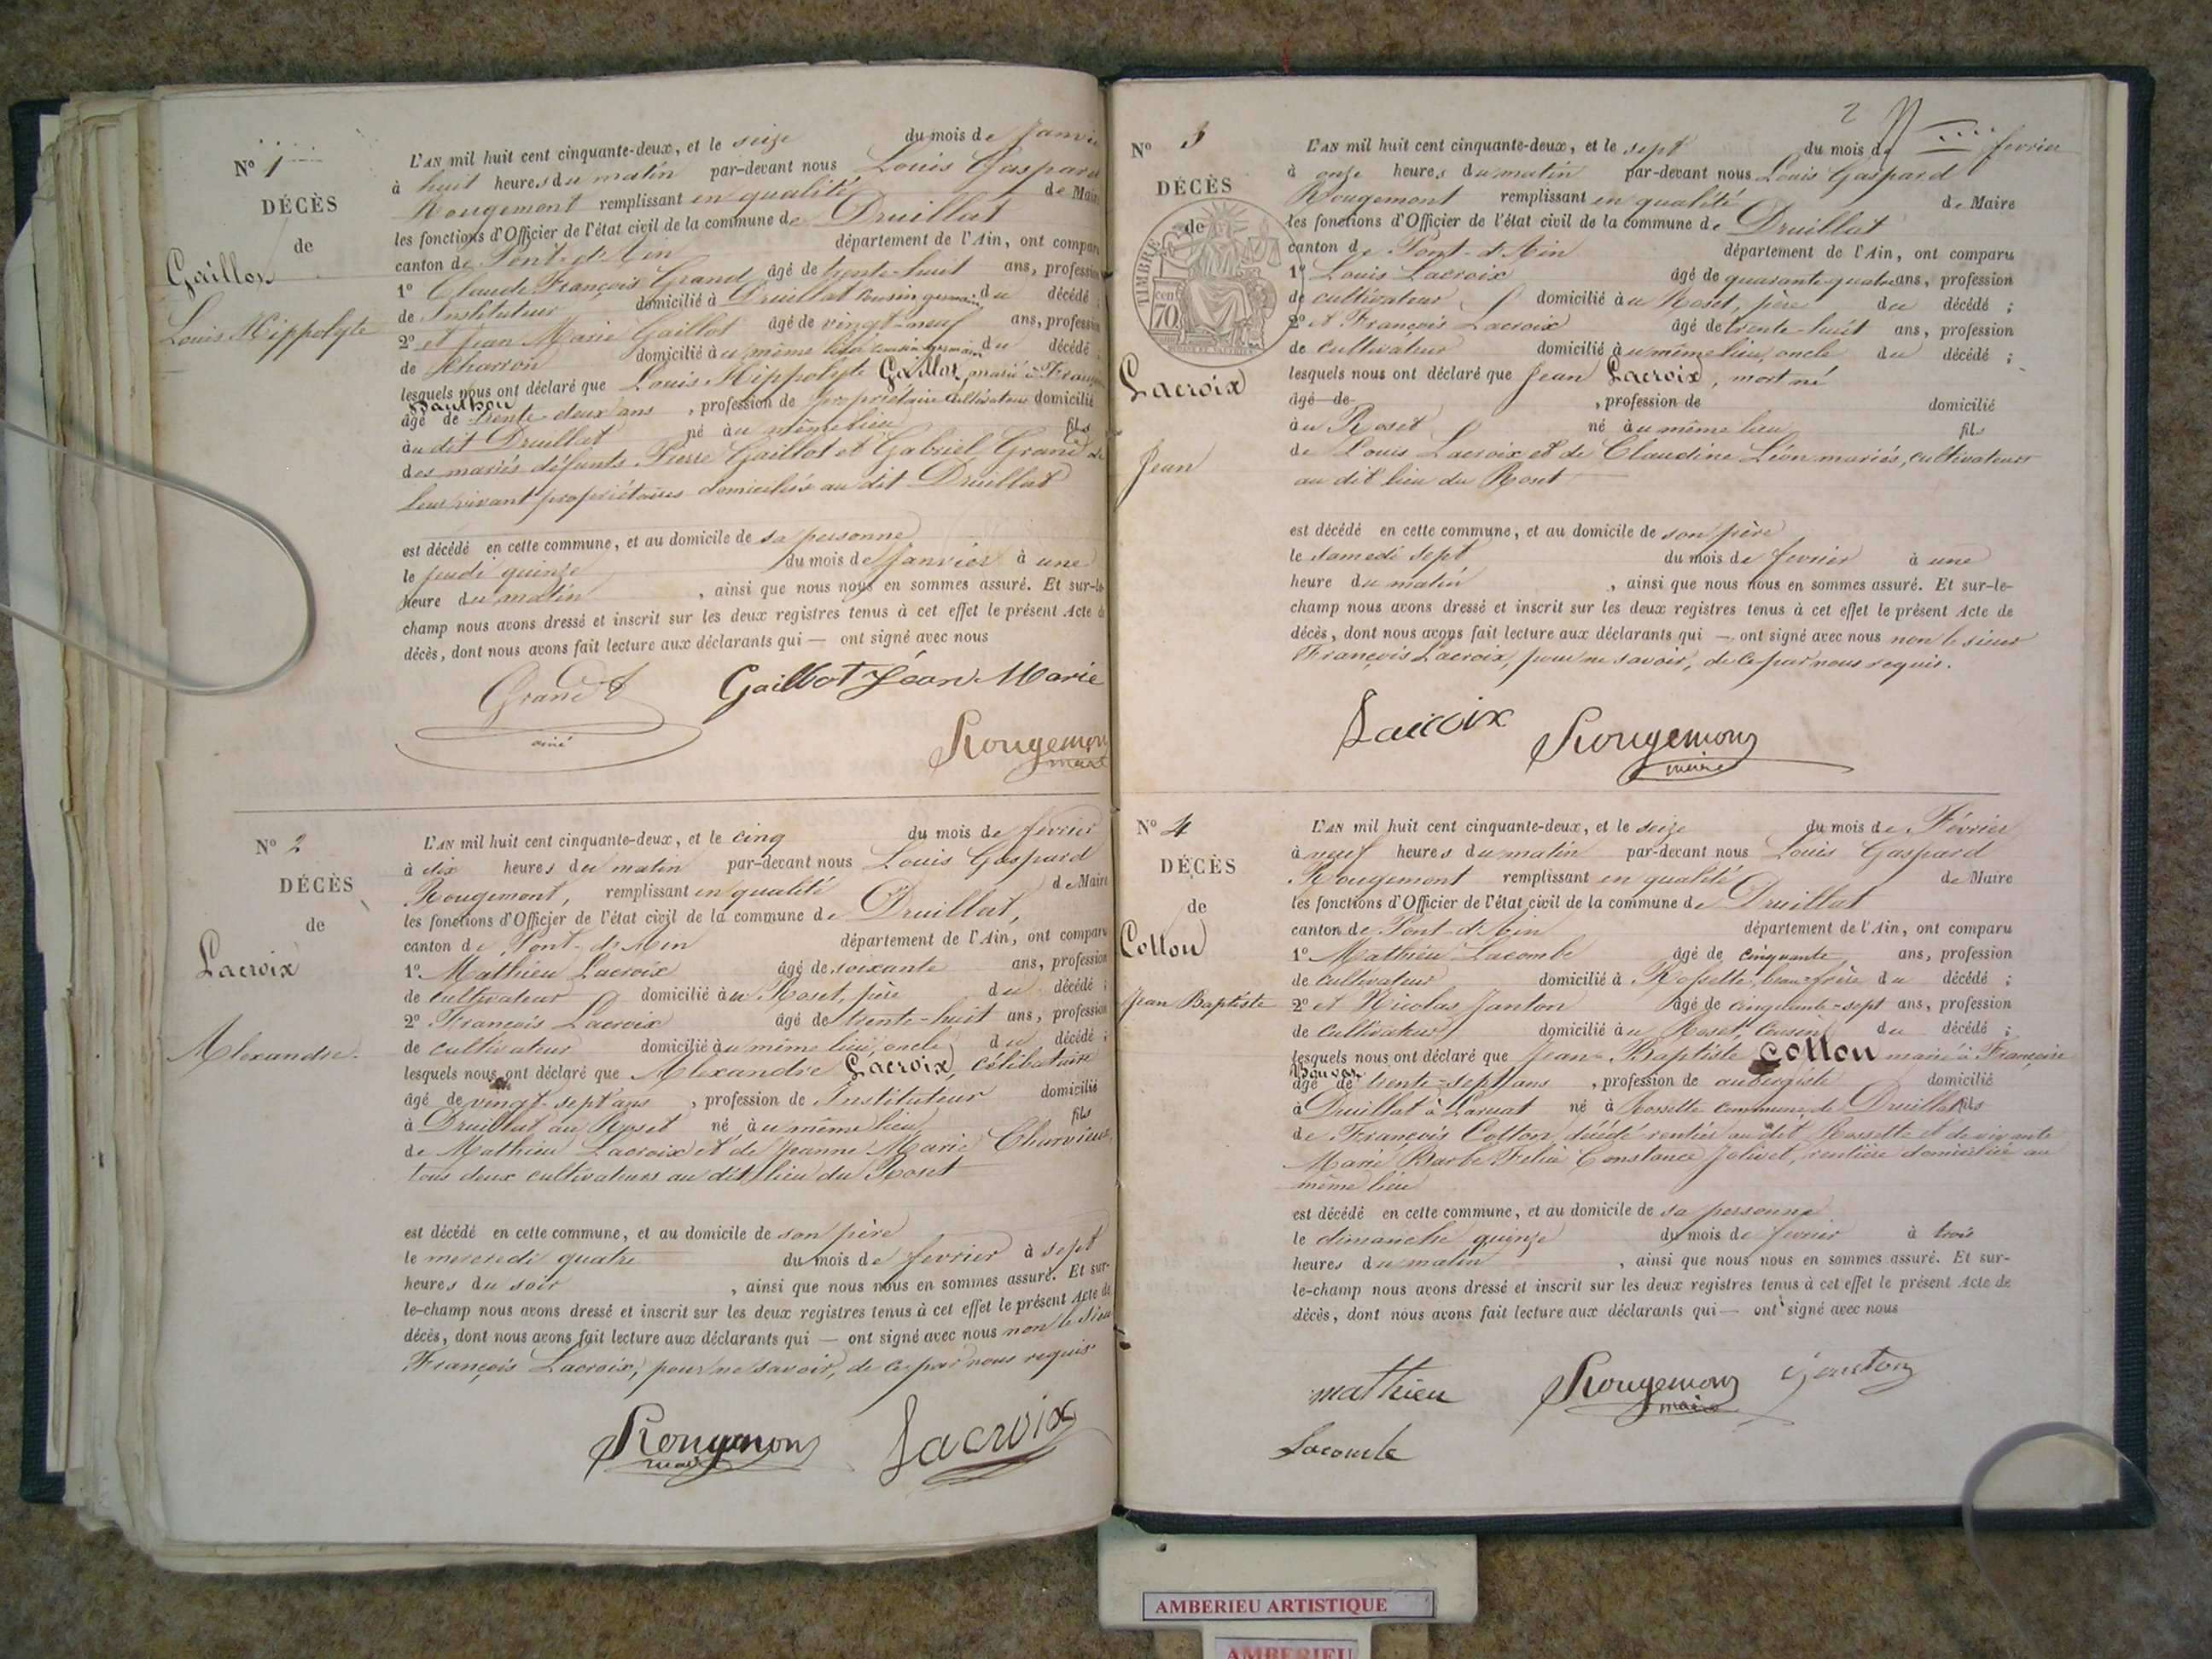 N° 1
DÉCÈS
de
Gaillot
Louis Hippolyte
L'AN mil huit cent cinquante-deux, et le seize du mois de Janvi
à huit heures du matin par-devant nous Louis Gaspard
Rougemont remplissant en qualité de Maire
les fonctions d'Officier de l'état civil de la commune de Druillat
canton de Pont-d'Ain département de l'Ain, ont comparu
1° Claude François Grand âgé de trente-huit ans, profession
de Instituteur domicilié à Druillat cousin germain du décédé ;
2° et Jean Marie Gaillot âgé de vingt-neuf ans, profession
de Charron domicilié au même lieu cousin germain du décédé ;
lesquels nous ont déclaré que Louis Hippolyte Gaillot, marié à
âgé de trente-deux ans, profession de propriétaire cultivateur domicilié
au dit Druillat né au même lieu fils
des mariés défunts Pierre Gaillot et Gabriel Grand de
leur vivant propriétaires domiciliés au dit Druillat
est décédé en cette commune, et au domicile de sa personne
le jeudi quinze du mois de janvier à une
heure du matin, ainsi que nous nous en sommes assuré. Et sur-le-
champ nous avons dressé et inscrit sur les deux registres tenus à cet effet le présent Acte de
décès, dont nous avons fait lecture aux déclarants qui — ont signé avec nous
Grand
ainé
Gaillot Jean Marie
Rougemon
maire
N° 2
DÉCÈS
de
Lacroix
Alexandre.
L'AN mil huit cent cinquante-deux, et le cinq du mois de fevrier
à dix heures du matin par-devant nous Louis Gaspard
Rougemont, remplissant en qualité de Maire
les fonctions d'Officier de l'état civil de la commune de Druillat,
canton de Pont-d'Ain département de l'Ain, ont comparu
1° Mathieu Lacroix âgé de soixante ans, profession
de cultivateur domicilié au Roset, père du décédé ;
2° François Lacroix âgé de trente-huit ans, profession
de cultivateur domicilié au même lieu, oncle du décédé ;
lesquels nous ont déclaré que Alexandre Lacroix, célibataire
âgé de vingt-sept ans, profession de Instituteur domicilié
à Druillat au Roset né au même lieu fils
de Mathieu Lacroix et de Jeanne Marie
tous deux cultivateurs au dit lieu du Roset
est décédé en cette commune, et au domicile de son père
le mercredi quatre du mois de fevrier à sept
heures du soir, ainsi que nous nous en sommes assuré. Et sur-
le-champ nous avons dressé et inscrit sur les deux registres tenus à cet effet le présent Acte de
décès, dont nous avons fait lecture aux déclarants qui — ont signé avec nous non le sieur
François Lacroix, pour ne savoir, de ce par nous requis
Rougemont
maire
Lacroix
2
N° 3
DÉCÈS
de
TIMBRE
cen
70
Lacroix
Jean
L'AN mil huit cent cinquante-deux, et le sept du mois de fevrier
à onze heures du matin par-devant nous Louis Gaspard
Rougemont remplissant en qualité de Maire
les fonctions d'Officier de l'état civil de la commune de Druillat
canton de Pont-d'Ain département de l'Ain, ont comparu
1° Louis Lacroix âgé de quarante quatre ans, profession
de cultivateur domicilié au Roset, père du décédé ;
2° et François Lacroix âgé de trente-huit ans, profession
de cultivateur domicilié au même lieu, oncle du décédé ;
lesquels nous ont déclaré que Jean Lacroix, mort né
âgé de, profession de domicilié
au Roset né au même lieu fils
de Louis Lacroix et de Claudine Léon mariés, cultivateurs
au dit lieu du Roset
est décédé en cette commune, et au domicile de son père
le samedi sept du mois de fevrier à une
heure du matin, ainsi que nous nous en sommes assuré. Et sur-le-
champ nous avons dressé et inscrit sur les deux registres tenus à cet effet le présent Acte de
décès, dont nous avons fait lecture aux déclarants qui — ont signé avec nous non le sieur
François Lacroix, pour ne savoir, de ce par nous requis.
Lacroix
Rougemont
maire
N° 4
DÉCÈS
de
Cotton
Jean Baptiste
L'AN mil huit cent cinquante-deux, et le seize du mois de Février
à neuf heures du matin par-devant nous Louis Gaspard
Rougemont remplissant en qualité de Maire
les fonctions d'Officier de l'état civil de la commune de Druillat
canton de Pont-d'Ain département de l'Ain, ont comparu
1° Mathieu Lacombe âgé de cinquante ans, profession
de cultivateur domicilié à Rossette, beau frère du décédé ;
2° et Nicolas Janton âgé de cinquante-sept ans, profession
de cultivateur domicilié au Roset, Cousin du décédé ;
lesquels nous ont déclaré que Jean-Baptiste Cotton marié à Françoise
âgé de trente-sept ans, profession de aubergiste domicilié
à Druillat à né à Rossette commune de Druillat fils
de François Cotton, décédé rentier au dit Rossette et de vivante
Marie Barbe Félix Constance Jolivet, rentière domiciliée au
même lieu
est décédé en cette commune, et au domicile de sa personne
le dimanche quinze du mois de fevrier à trois
heures du matin, ainsi que nous nous en sommes assuré. Et sur-
le-champ nous avons dressé et inscrit sur les deux registres tenus à cet effet le présent Acte de
décès, dont nous avons fait lecture aux déclarants qui — ont signé avec nous
mathieu
Lacombe
Rougemont
maire
Janton
AMBERIEU ARTISTIQUE
AMBERIEU